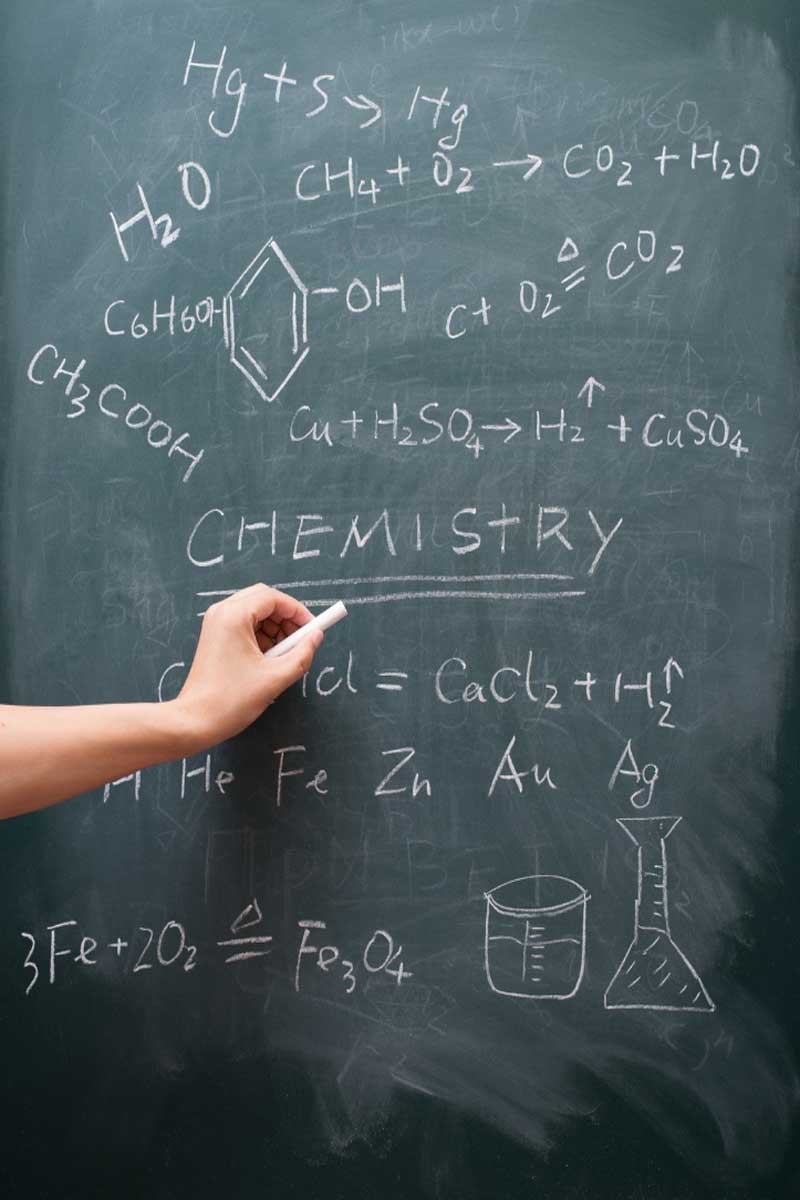 Hg + S → Hg
CH₄ + O₂ → CO₂ + H₂O
H₂O
C + O₂ ≜ CO₂
C₆H₆OH
-OH
CH₃COOH
Cu + H₂SO₄ → H₂↑ + CuSO₄
CHEMISTRY
Cl = CaCl₂ + H₂↑
H He Fe Zn Au Ag
3Fe + 2O₂ ≜ Fe₃O₄